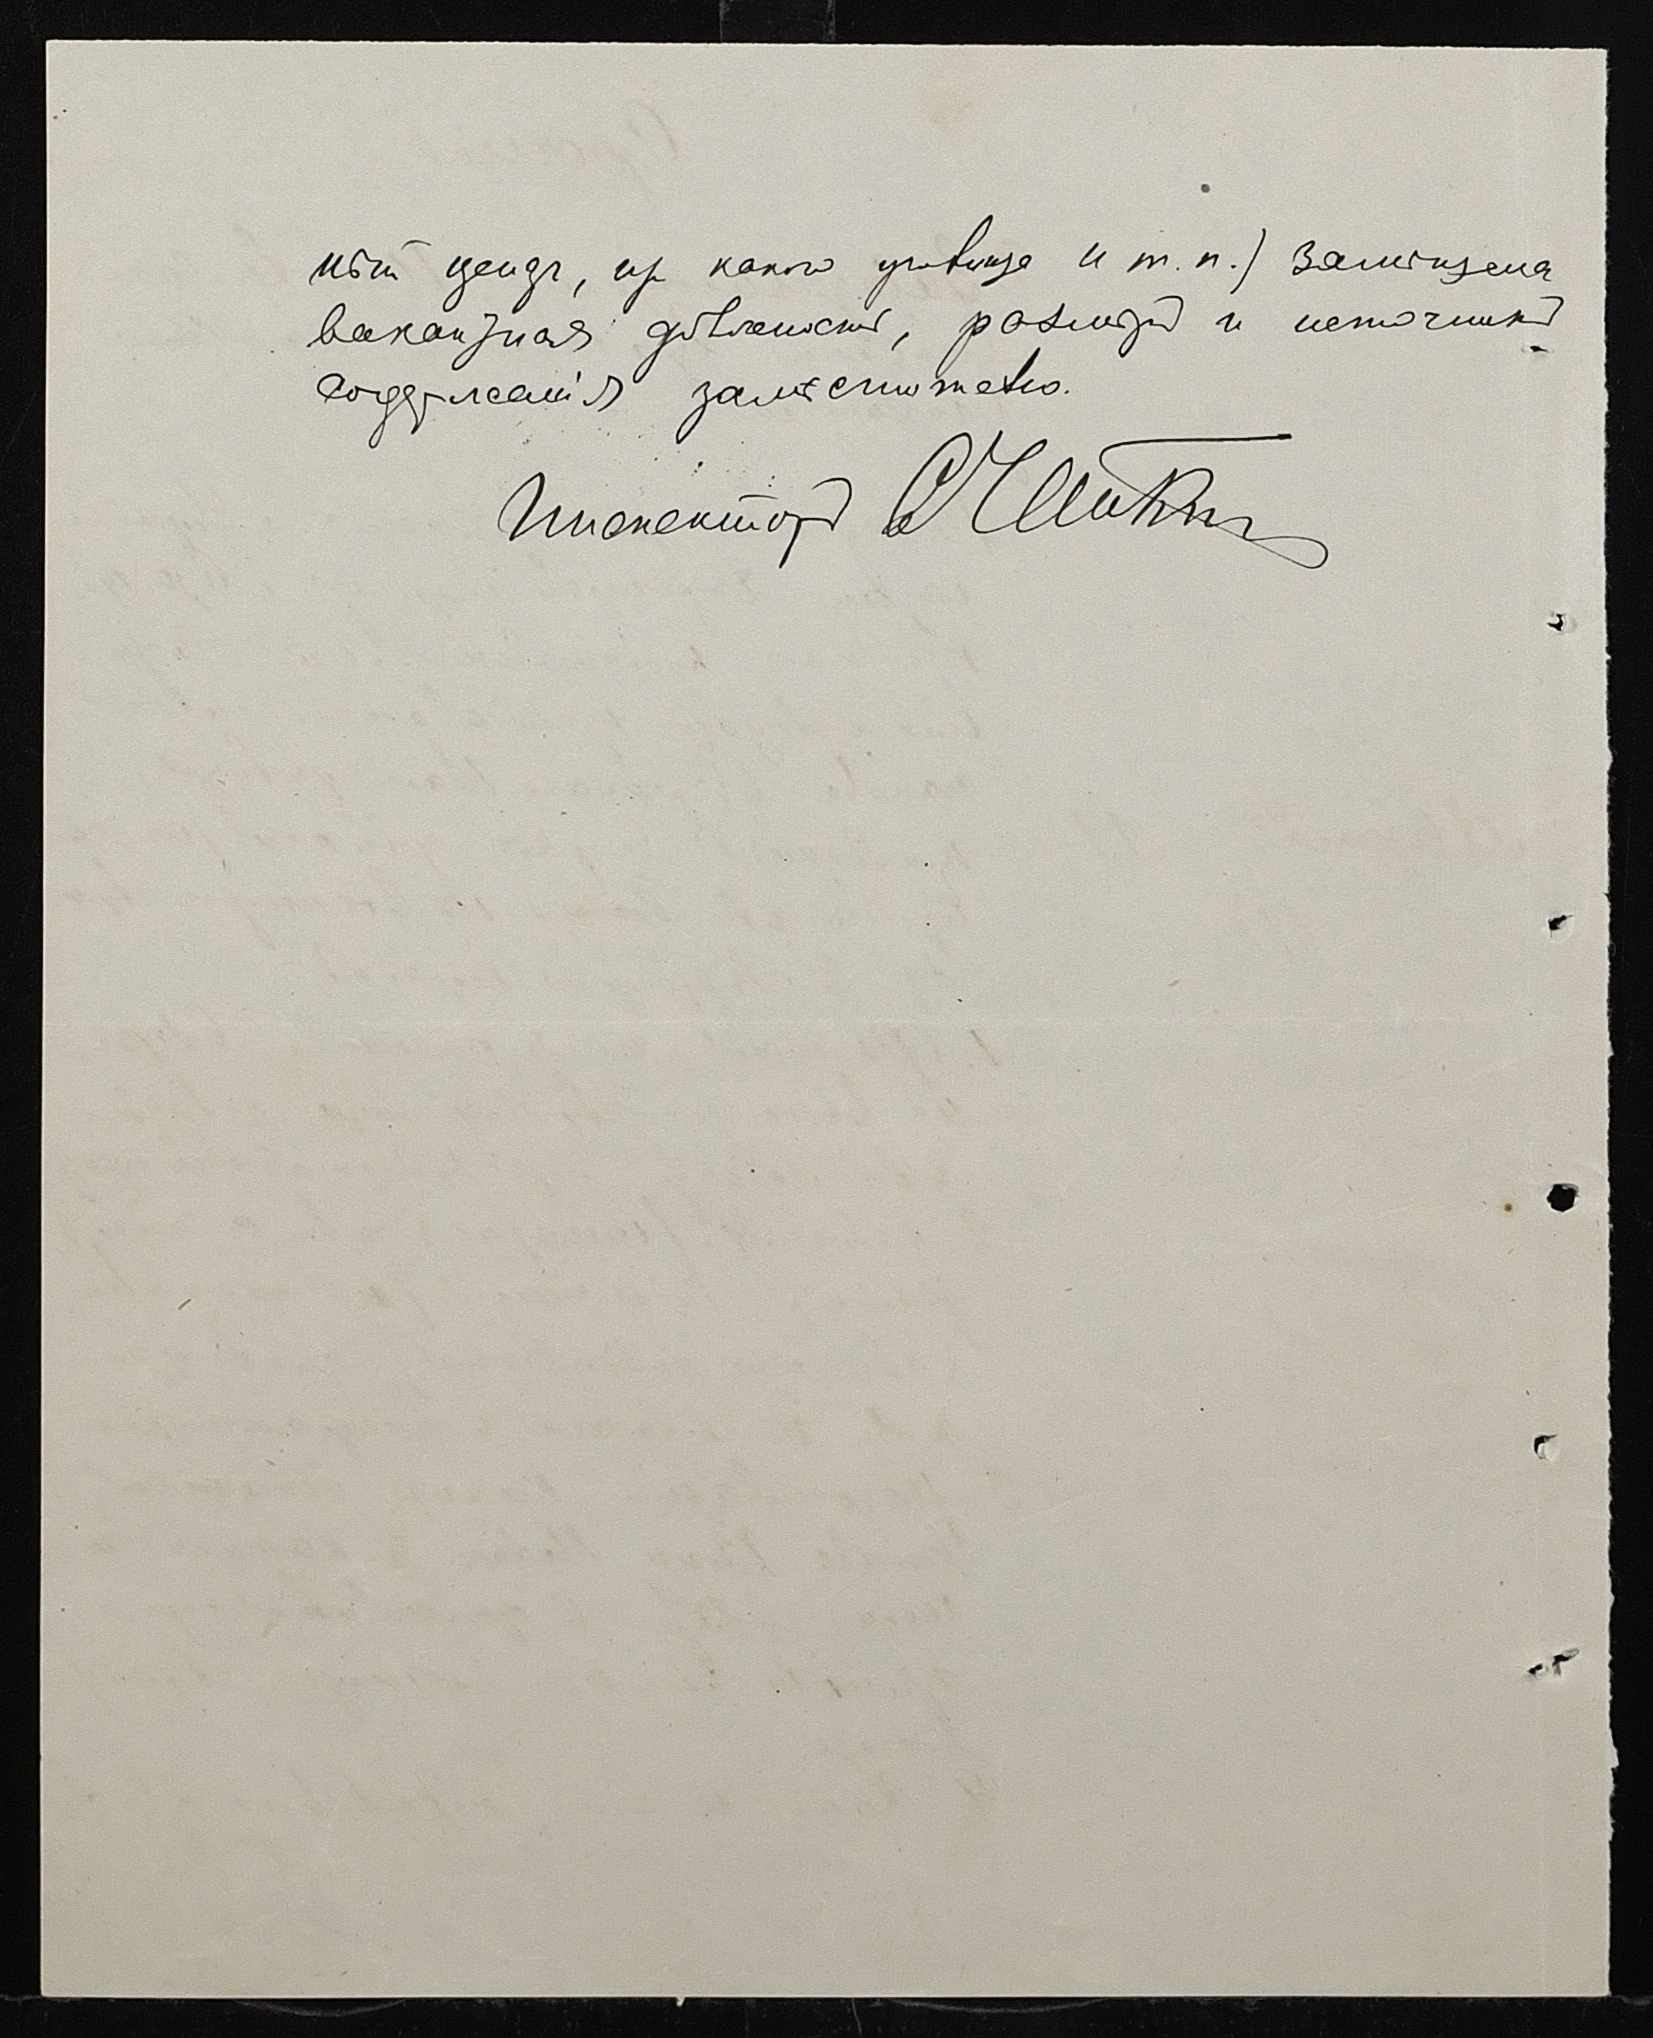 ный ценз, из какого училища и т. п.) замѣщена
вакантная должность, размѣръ и источникъ
содержанія замѣстителю.
Инспекторъ